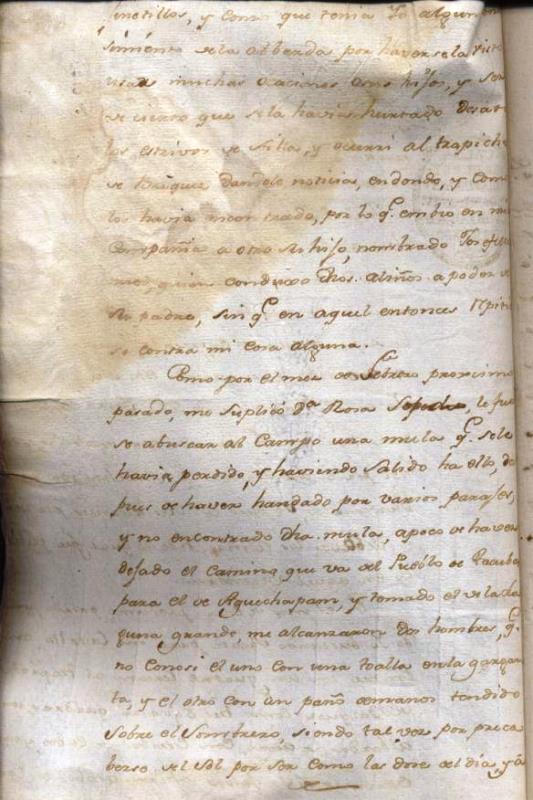 inetillos, y como que tenia Yo algun con
simiento de la albarda por haversela visto
usar muchas ocaciones a sus hijos, y ser
de cierto que se la havian hurtado desate
los estrivos de silla, y ocurri al trapiche
dandole noticia, en donde, y como
los havia incontrado, por lo q.e embió en mi
Compañia a otro su hijo, nombrado
quien conduxo dhos. aliños a poder de
su padre, sin q.e en aquel entonces
se contra mi cosa alguna.
Como por el mes de Febrero proximo
pasado, me suplicó d.a Rosa le fue
se a buscar al Campo una mula q.e se le
havia perdido, y haviendo salido ha ello, des
pues de haver handado por varios parajes,
y no encontrado dha. mula, apoco de haver
dejado el Camino que va del Pueblo de
para el de Aguachapam, y tomado el de la la
guna grande, me alcanzaron dos hombres, q.e
no conosi el uno con una toalla en la gargan
ta, y el otro con un paño de manos tendido
sobre el Sombrero, siendo tal vez por preca
berse del Sol por ser como las dose del dia, y á